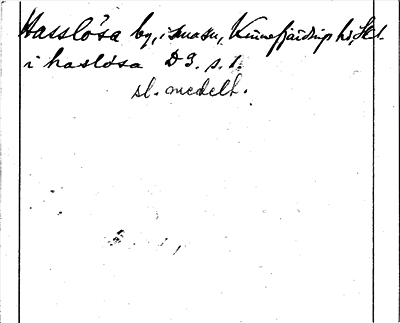 Hasslösa by, i smasn, Kinnefjärdings hd, Skbl.
i haslösa D 9. s. 1.
sl. medelt.